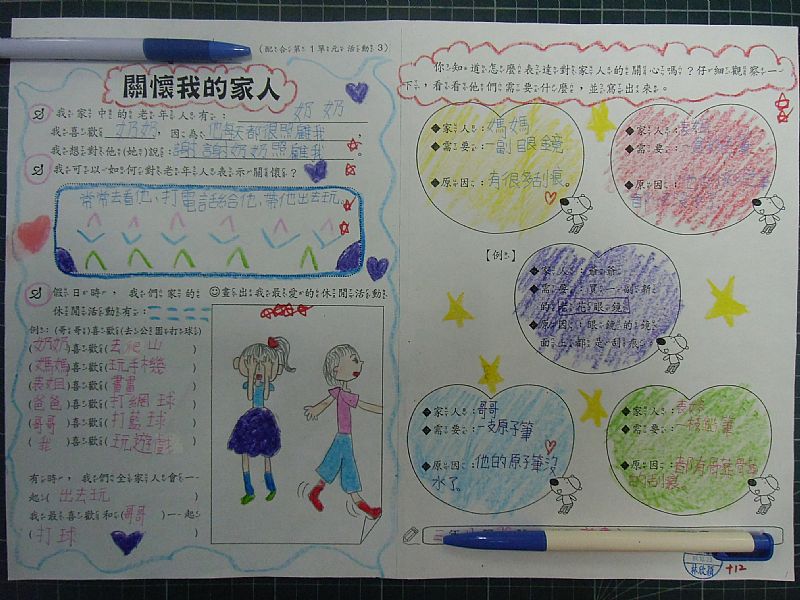 (配合第1單元活動3)
關懷我的家人
我家中的老年人有：奶奶
我喜歡奶奶，因為他每天都很照顧我，
我想對他(她)說：謝謝奶奶照顧我。
我可以如何對老年人表示關懷？
常常去看他，打電話給他，帶他出去玩。
假日時，我們家的
休閒活動有：
例：(哥哥)喜歡(去公園打球)
(奶奶)喜歡(去爬山)
(媽媽)喜歡(玩手機)
(表姐)喜歡(畫畫)
(爸爸)喜歡(打網球)
(哥哥)喜歡(打籃球)
(我)喜歡(玩遊戲)
有時，我們全家人會一
起(出去玩)
我最喜歡和(哥哥)一起
(打球)
☺畫出我最愛的休閒活動
你知道怎麼表達對家人的關心嗎？仔細觀察一
下，看看他們需要什麼，並寫出來。
◆家人：媽媽
◆需要：一副眼鏡
◆原因：有很多刮痕。
◆家人：
◆需要：
◆原因：
【例】
◆家人：爺爺
◆需要：買一副新
的老花眼鏡
◆原因：眼鏡的鏡
面上都是刮痕。
◆家人：哥哥
◆需要：一支原子筆
◆原因：他的原子筆沒
水了。
◆家人：
◆需要：
◆原因：
的刮痕
林欣穎
+12